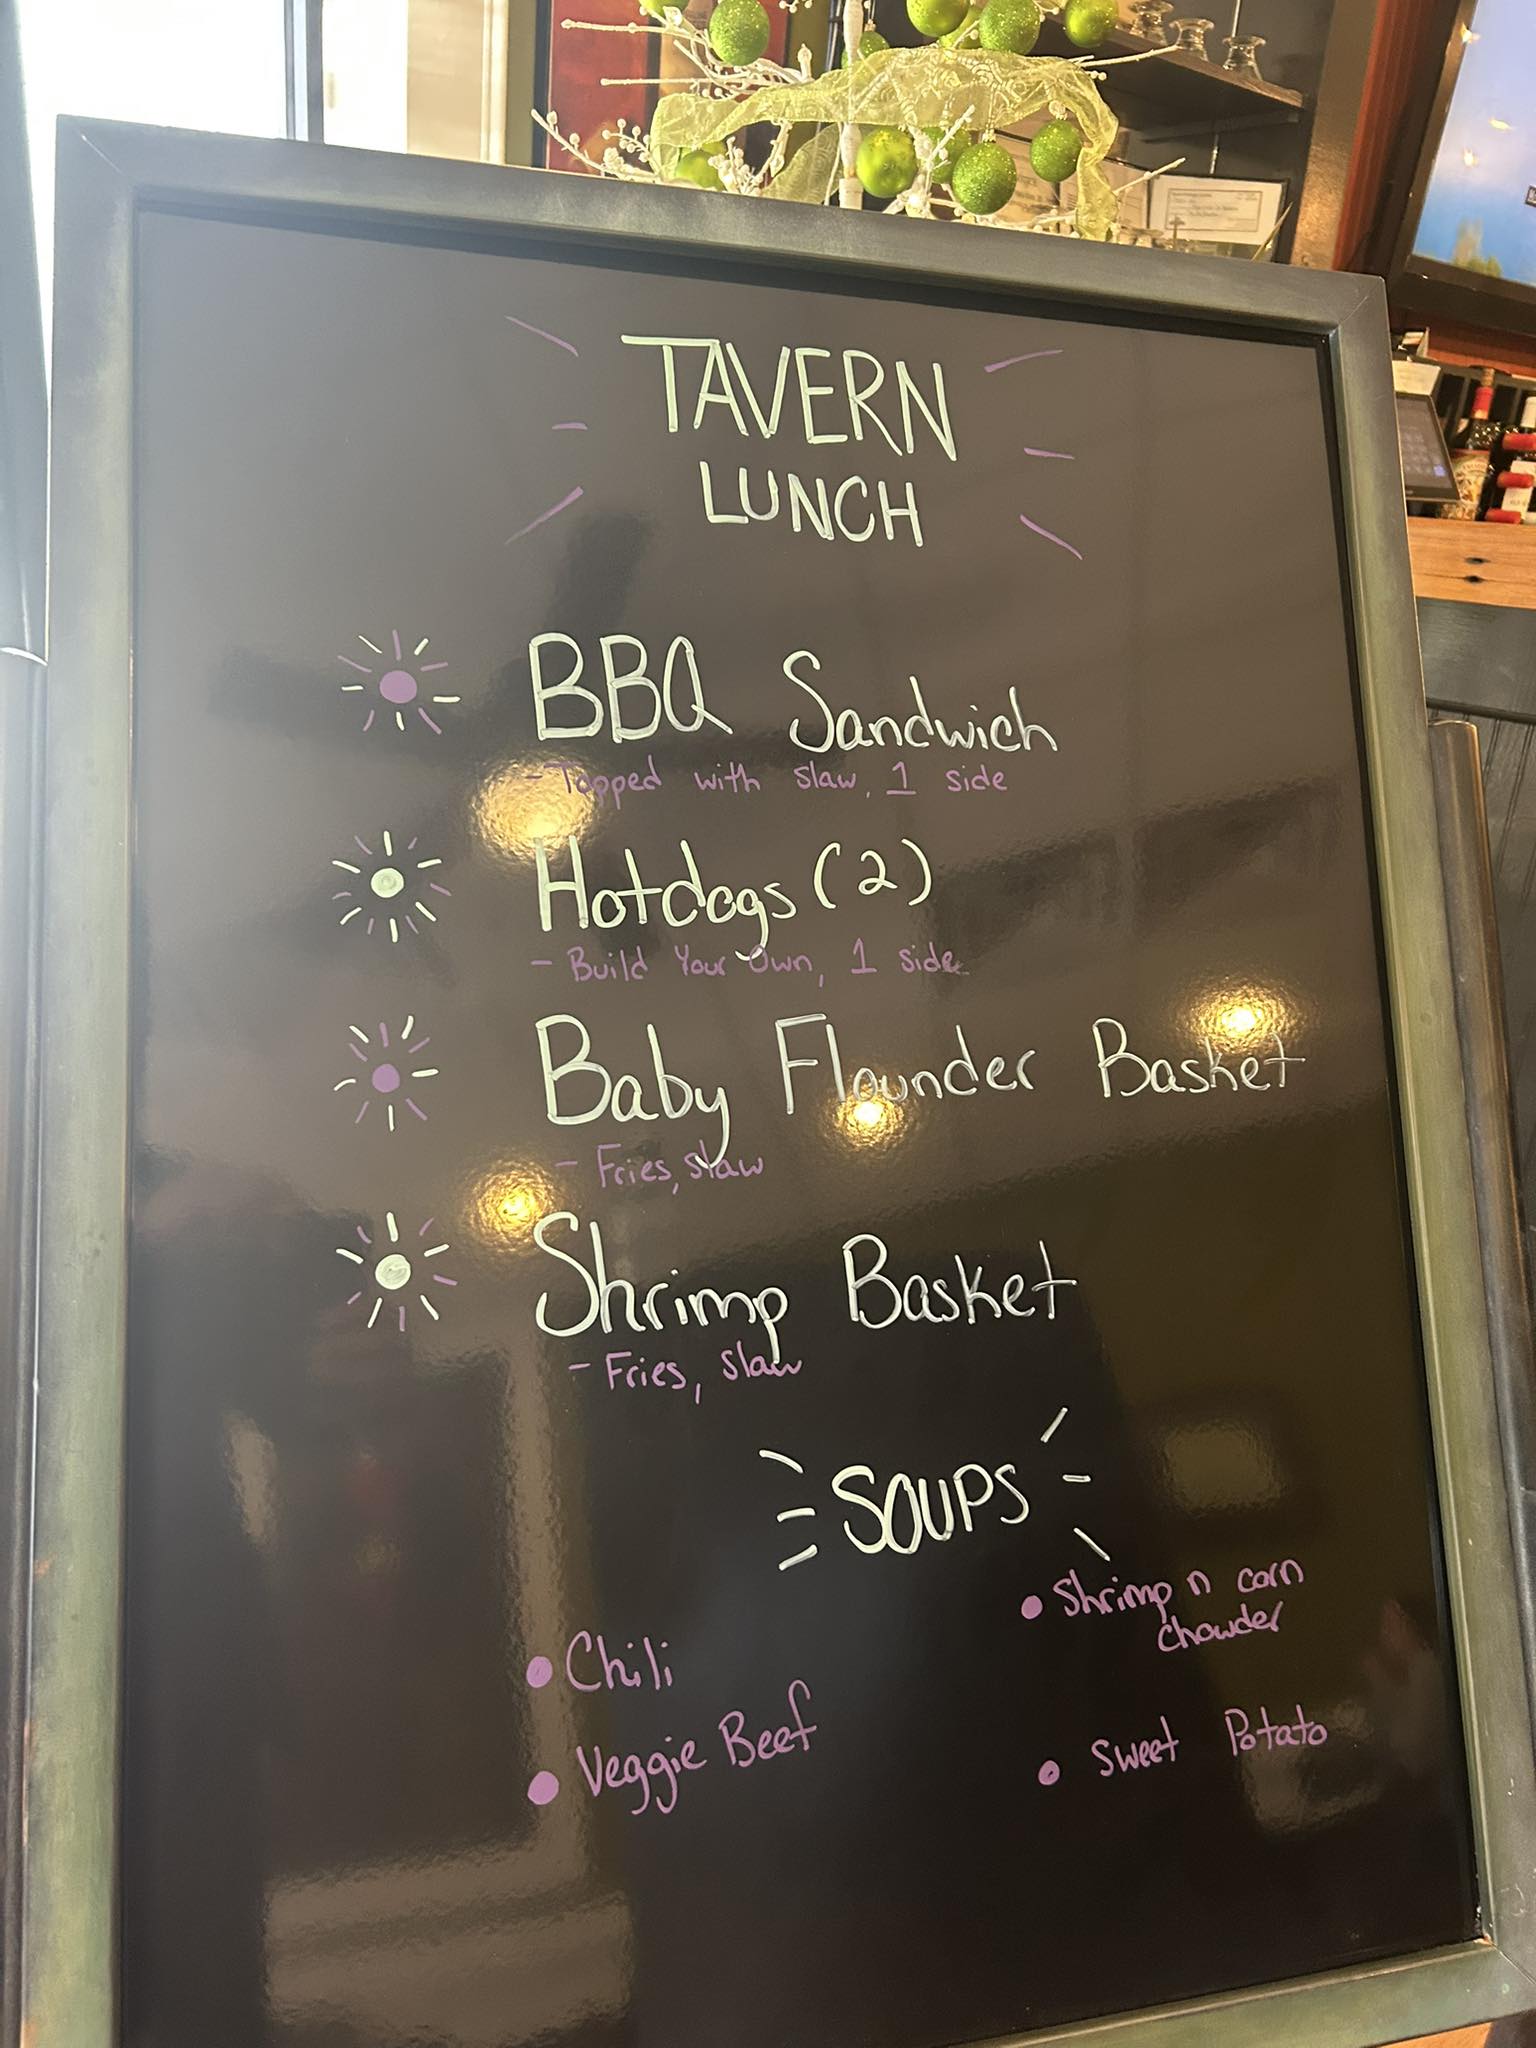 TAVERN
LUNCH
BBQ Sandwich
- Topped with slaw, 1 side
Hotdogs (2)
- Build Your Own, 1 side
Baby Flounder Basket
- Fries, slaw
Shrimp Basket
- Fries, slaw
SOUPS
• Shrimp n corn
chowder
• Chili
• Veggie Beef
• Sweet Potato